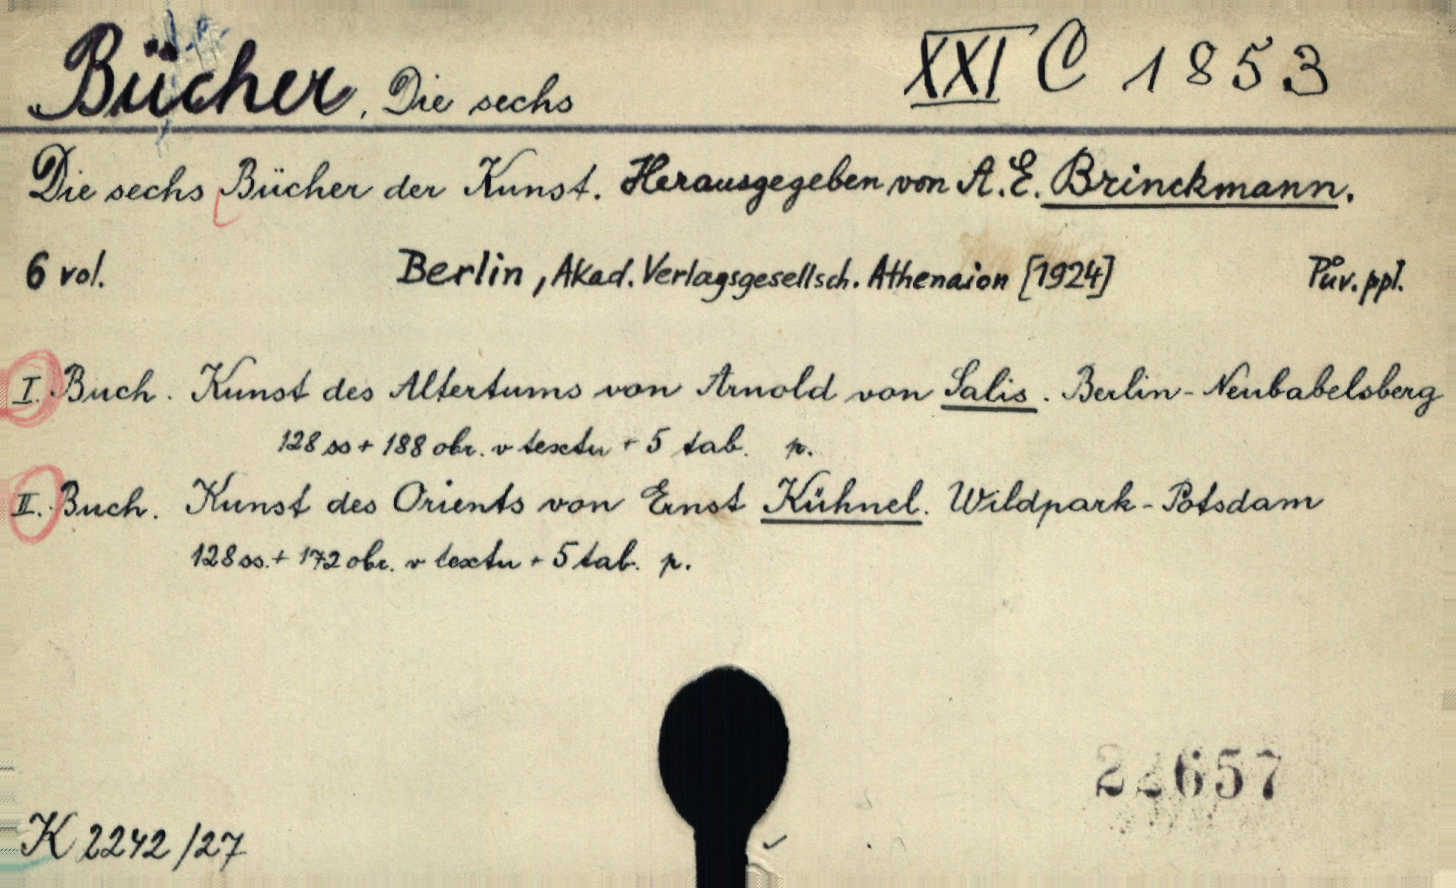 Bücher, Die sechs XXI C 1853
Die sechs Bücher der Kunst. Herausgegeben von A. E. Brinckmann.
6 vol. Berlin, Akad. Verlagsgesellsch. Athenaion [1924] Pův. ppl.
I. Buch. Kunst des Altertums von Arnold von Salis. Berlin-Neubabelsberg
128 ss + 188 obr. v textu + 5 tab. p.
II. Buch. Kunst des Orients von Ernst Kühnel. Wildpark-Potsdam
128 ss. + 172 obr. v textu + 5 tab. p.
22657
K 2242/27